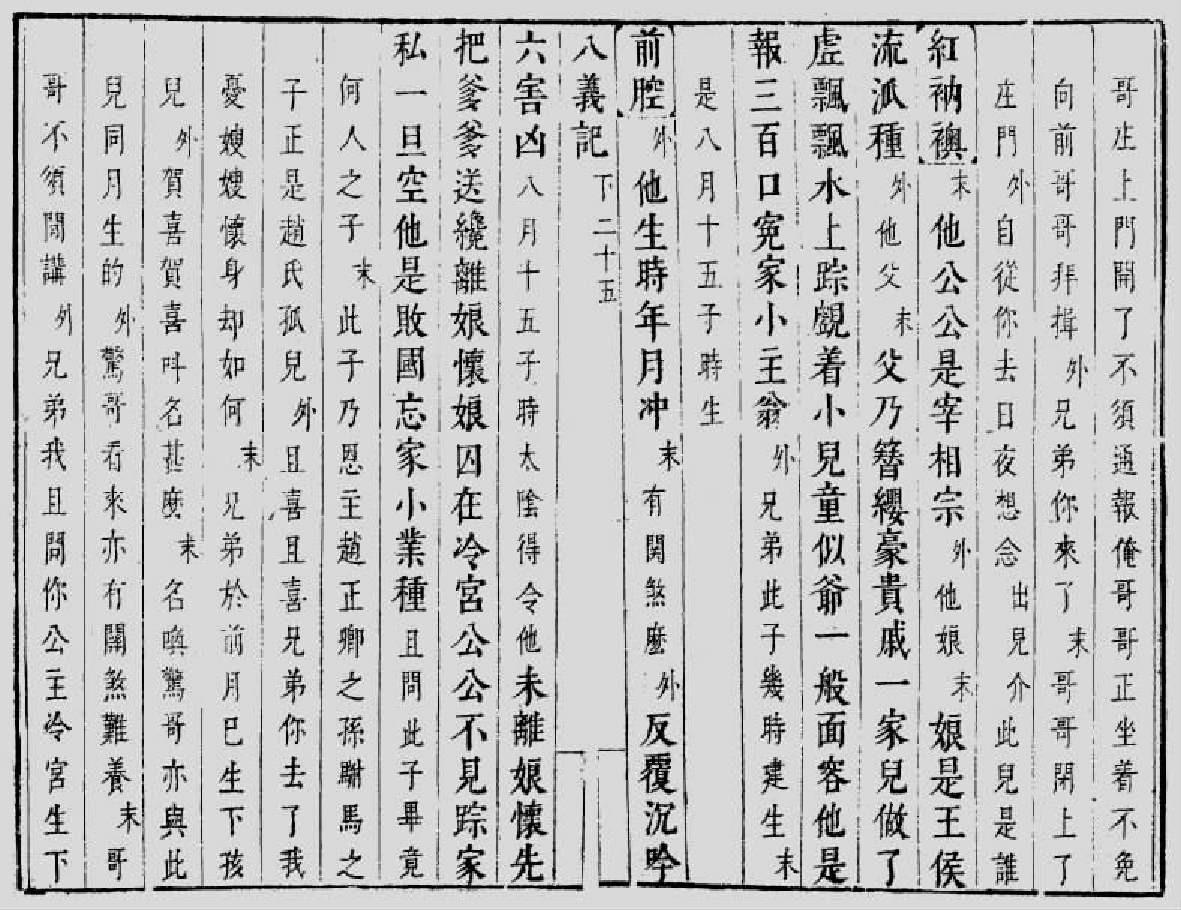 哥庄上門開了不須通報俺哥哥正坐着不免
向前哥哥拜揖外兄弟你來了末哥哥閉上了
庄門外自從你去日夜想念出兒介此兒是誰
紅衲襖末他公公是宰相宗外他娘末娘是王侯
流派種外他父末父乃簪纓豪貴戚一家兒做了
虛飄飄水上踪覷着小兒童似爺一般面容他是
報三百口寃家小主翁外兄弟此子幾時建生末
是八月十五子時生
前腔外他生時年月冲末有関煞麽外反覆沉吟
八義記 下 二十五
六害凶八月十五子時太陰得令他未離娘懷先
把爹爹送纔離娘懷娘囚在冷宮公公不見踪家
私一旦空他是敗國忘家小業種且問此子畢竟
何人之子末此子乃恩主趙正卿之孫駙馬之
子正是趙氏孤兒外且喜且喜兄弟你去了我
憂嫂嫂懷身却如何末兄弟於前月已生下孩
兒外賀喜賀喜呌名甚麽末名喚驚哥亦與此
兒同月生的外驚哥看來亦有関煞難養末哥
哥不須閒講外兄弟我且問你公主冷宮生下